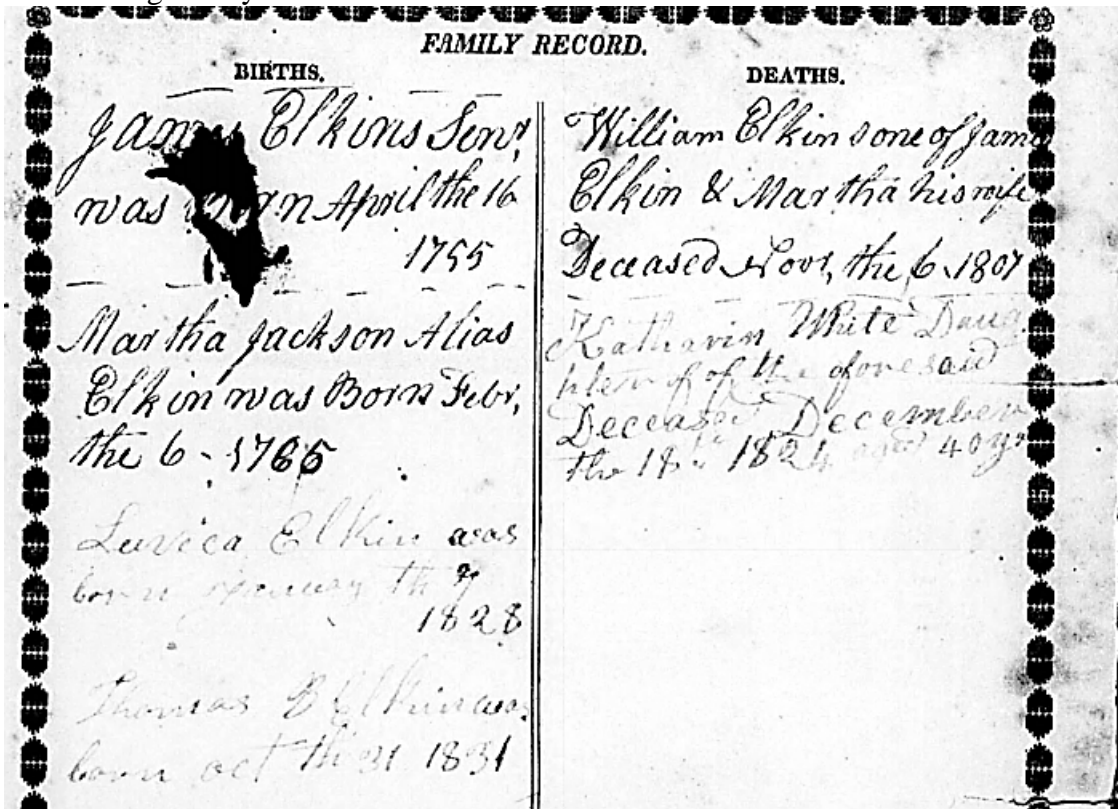 FAMILY RECORD.
BIRTHS.
James Elkins Senr.
was born April the 16
1755
Martha Jackson Alias
Elkin was Born Febr,
the 6 - 1765
Luvica Elkin was
born th 7
1828
Thomas B Elkin was
born oct th 31 1831
DEATHS.
William Elkin sone of Jame
Elkin & Martha his wife
Deceased Novr, the 6. 1807
Katharin White Daug
hter of of the aforesaid
Deceased December
the 18th 1824 aged 40 yr